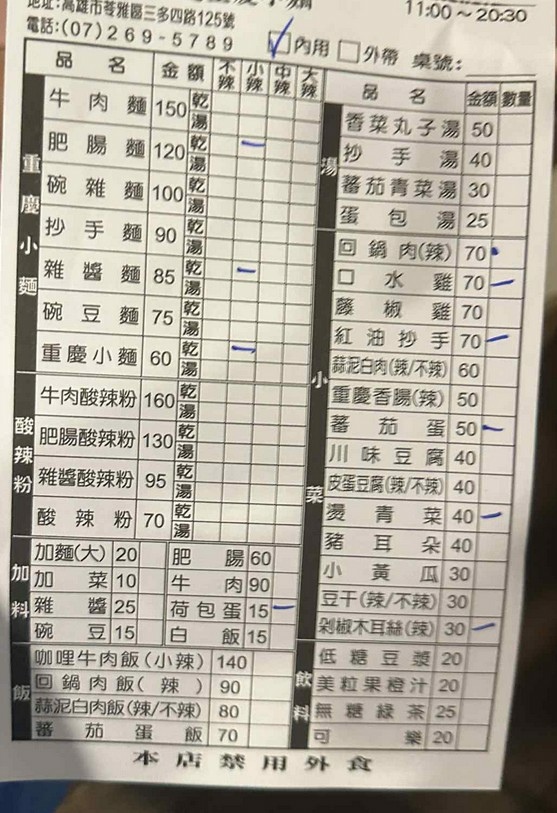 地址:高雄市苓雅區三多四路125號
11:00～20:30
電話:(07)269-5789 ☑內用 □外帶 桌號:
品名 金額 不辣 小辣 中辣 大辣
重慶小麵
牛肉麵 150 乾 湯
肥腸麵 120 乾 湯
碗雜麵 100 乾 湯
抄手麵 90 乾 湯
雜醬麵 85 乾 湯
碗豆麵 75 乾 湯
重慶小麵 60 乾 湯
酸辣粉
牛肉酸辣粉 160 乾 湯
肥腸酸辣粉 130 乾 湯
雜醬酸辣粉 95 乾 湯
酸辣粉 70 乾 湯
加料
加麵(大) 20 肥腸 60
加菜 10 牛肉 90
雜醬 25 荷包蛋 15
碗豆 15 白飯 15
飯
咖哩牛肉飯(小辣) 140
回鍋肉飯(辣) 90
蒜泥白肉飯(辣/不辣) 80
蕃茄蛋飯 70
品名 金額 數量
湯
香菜丸子湯 50
抄手湯 40
蕃茄青菜湯 30
蛋包湯 25
小菜
回鍋肉(辣) 70
口水雞 70
藤椒雞 70
紅油抄手 70
蒜泥白肉(辣/不辣) 60
重慶香腸(辣) 50
蕃茄蛋 50
川味豆腐 40
皮蛋豆腐(辣/不辣) 40
燙青菜 40
豬耳朵 40
小黃瓜 30
豆干(辣/不辣) 30
剁椒木耳絲(辣) 30
飲料
低糖豆漿 20
美粒果橙汁 20
無糖綠茶 25
可樂 20
本店禁用外食